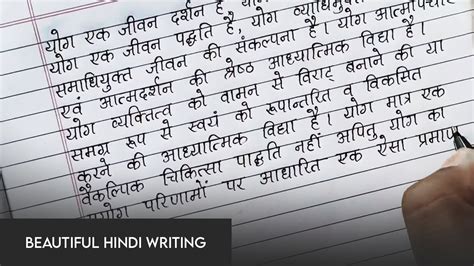 योग एक जीवन दर्शन है, योग
योग एक जीवन पद्धति है, योग व्याधिमुक्त
समाधियुक्त जीवन की संकल्पना है। योग आत्मोपचार
एवं आत्मदर्शन की श्रेष्ठ आध्यात्मिक विद्या है।
योग व्यक्तित्व को वामन से विराट् बनाने की या
समग्र रूप से स्वयं को रूपान्तरित व विकसित
करने की आध्यात्मिक विद्या है। योग मात्र एक
वैकल्पिक चिकित्सा पद्धति नहीं अपितु योग का
प्रयोग परिणामों पर आधारित एक ऐसा प्रमाण
BEAUTIFUL HINDI WRITING